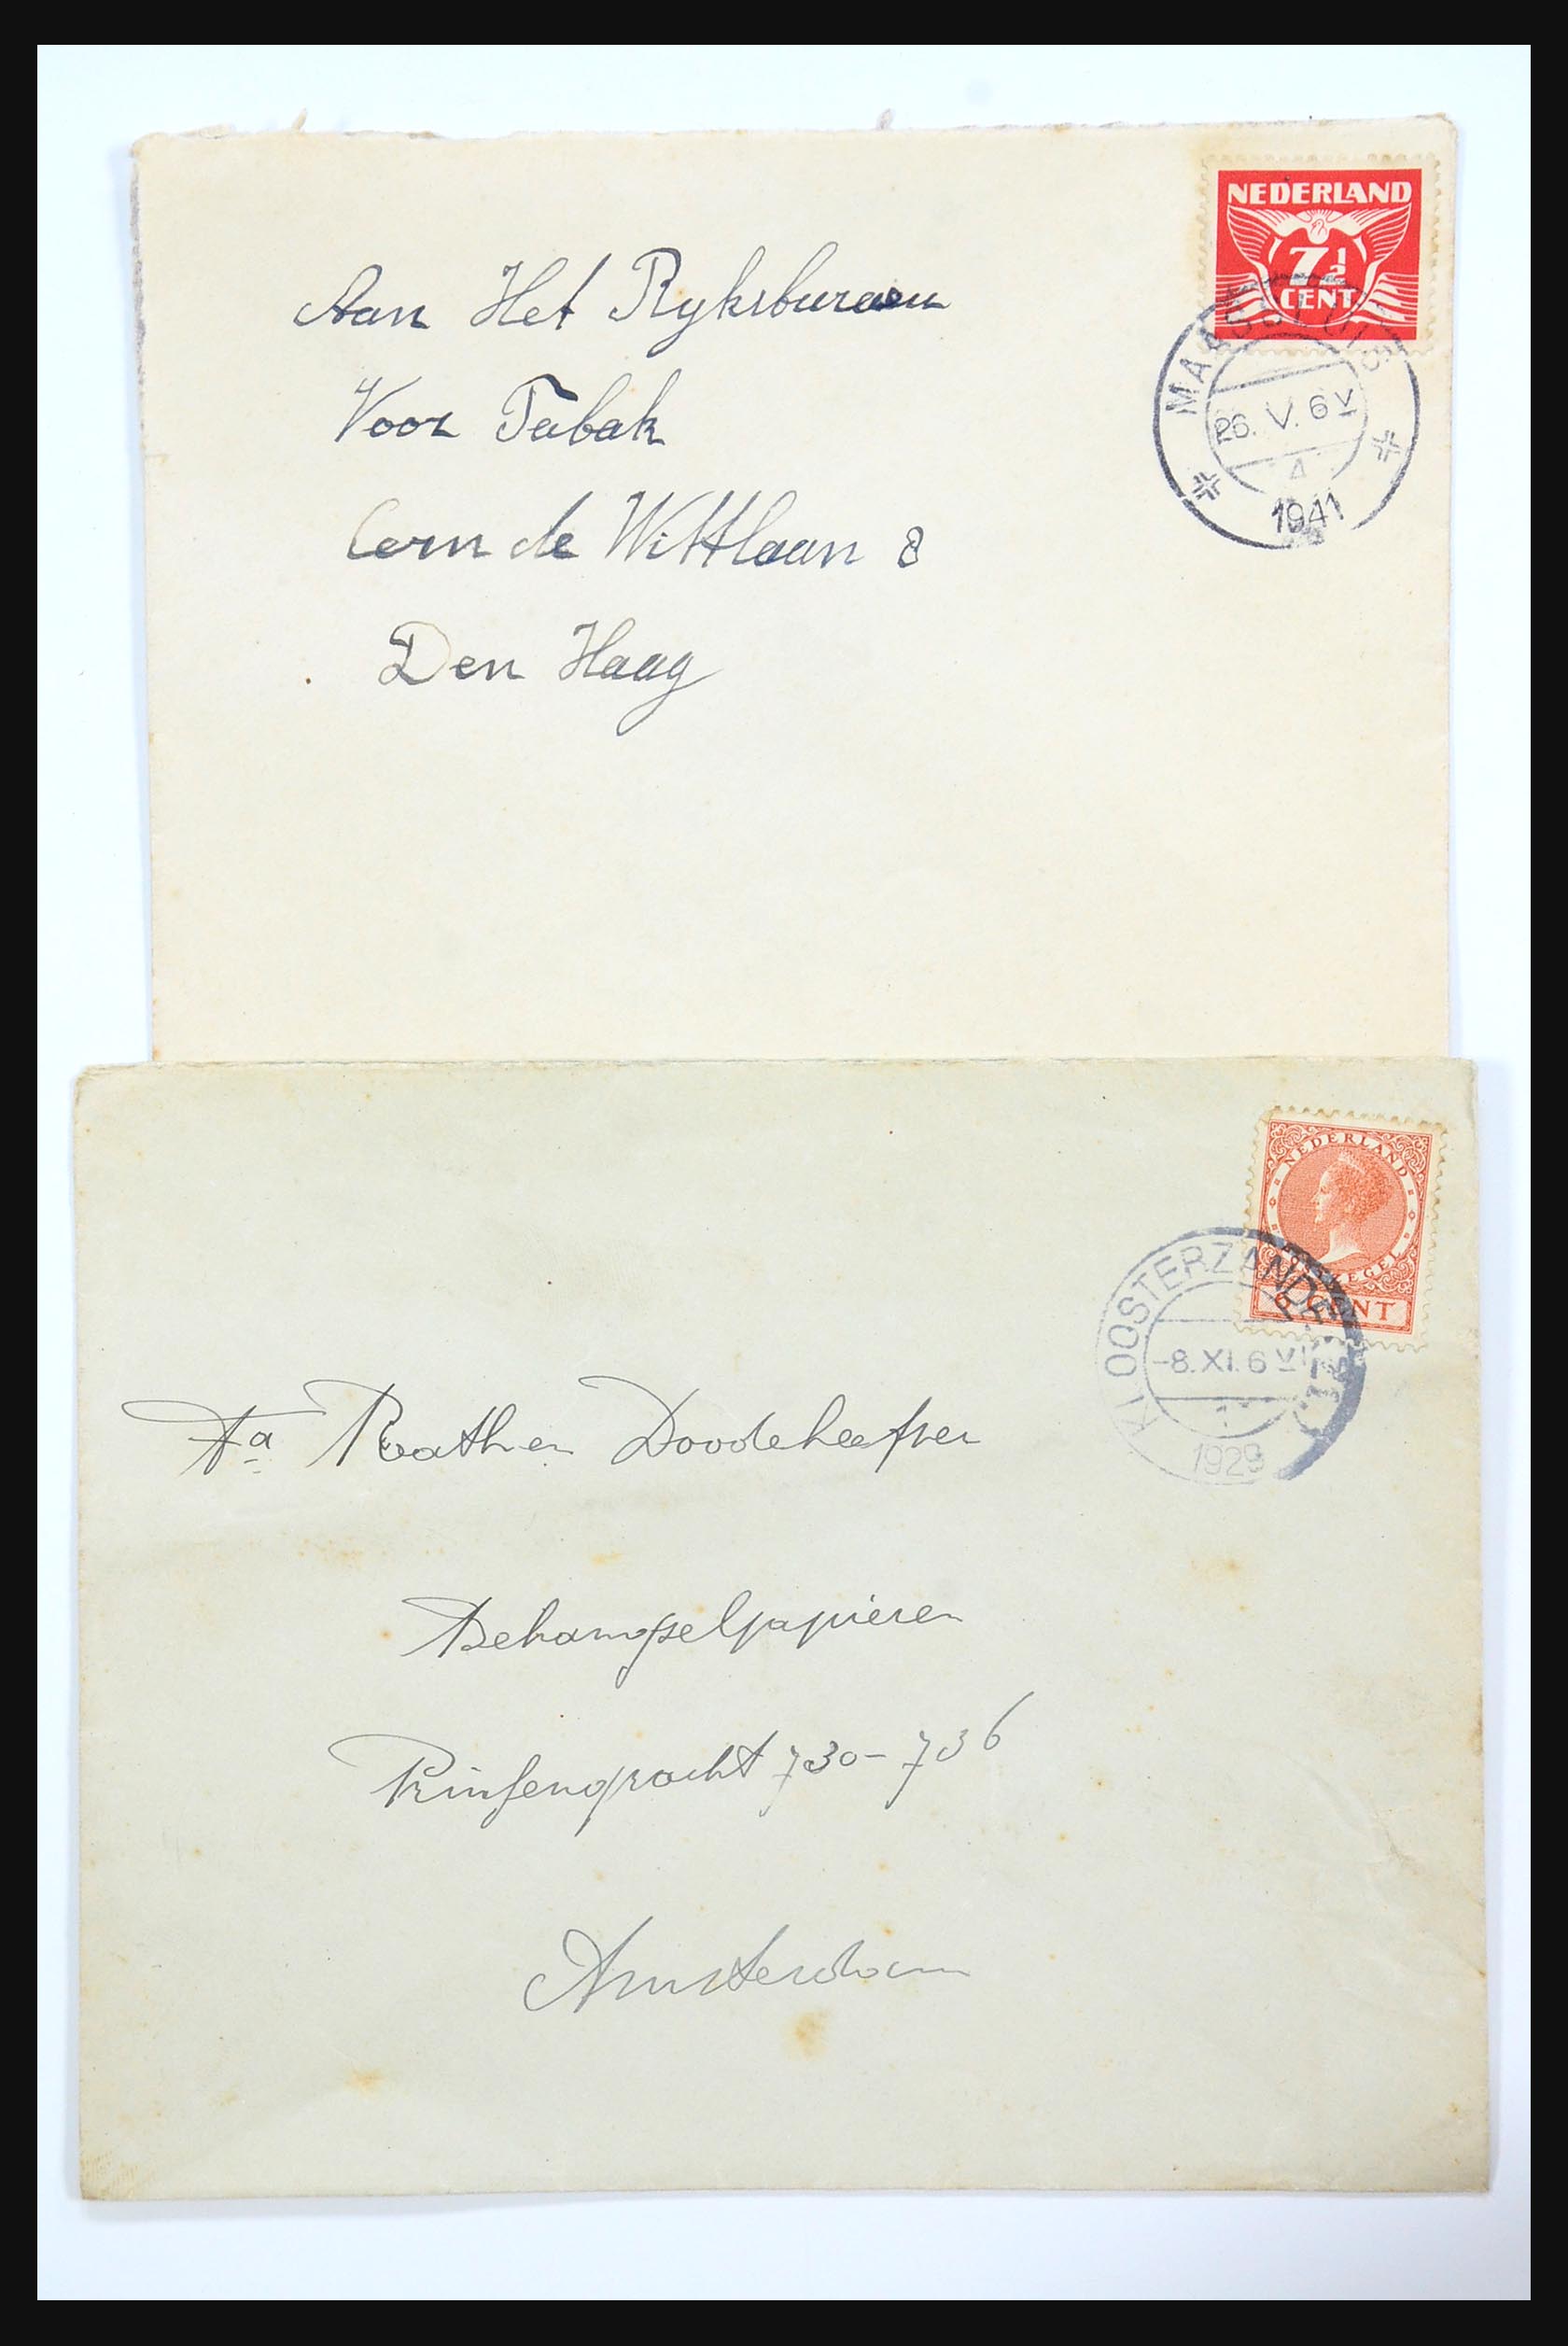 NEDERLAND
7½
CENT
MAASSLUIS
26. V. 6 V
4
1941
Aan Het Ryksbureau
Voor Tabak
Corn de Wittlaan 8
Den Haag
NEDERLAND
CENT
KLOOSTERZANDE
-8. XI. 6 V
1
1929
Fa Rath en Doodeheefver
Behangselpapieren
Prinsengracht 730-736
Amsterdam